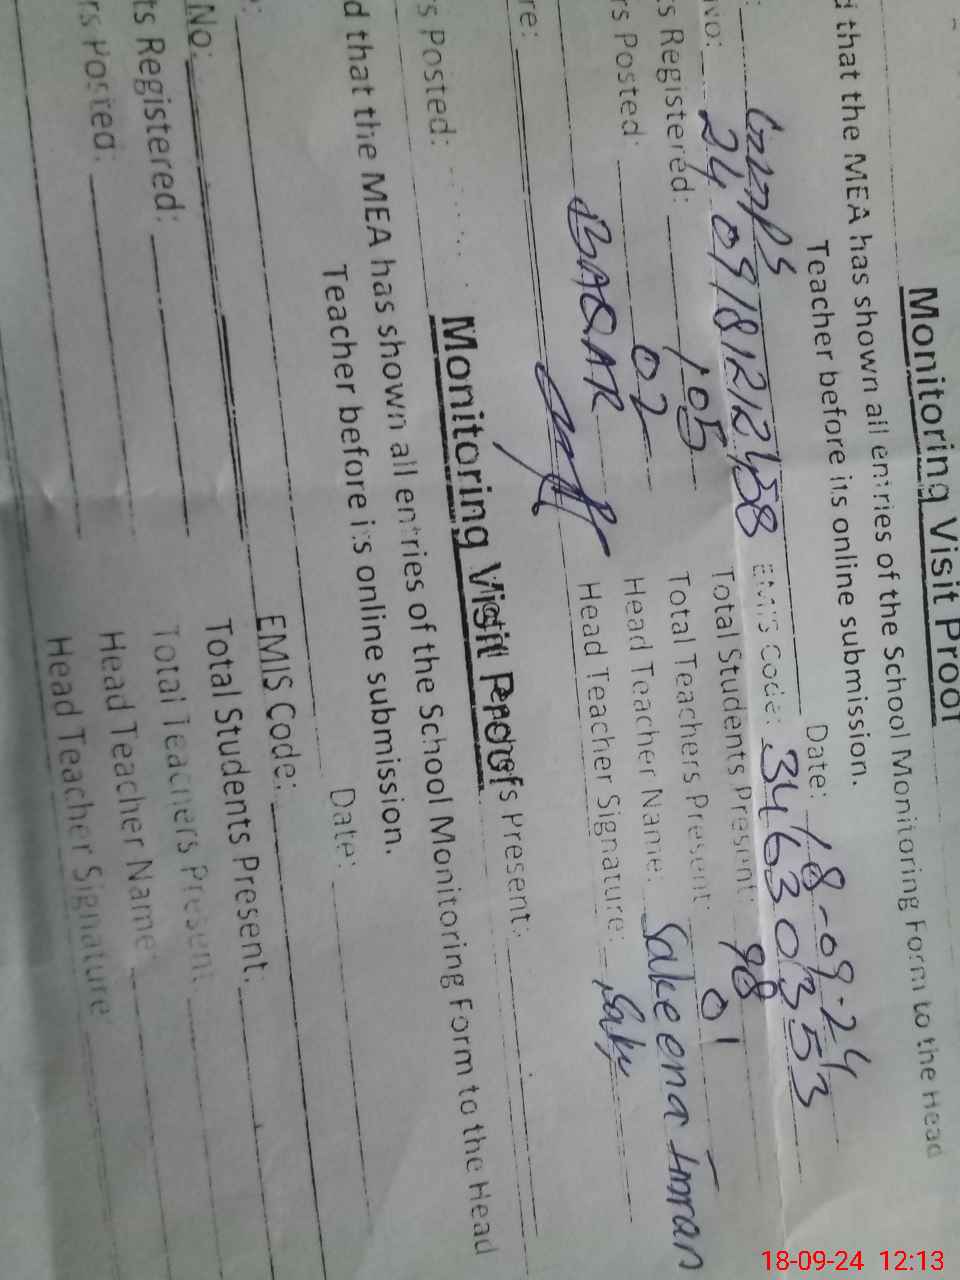 Monitoring Visit Proof
d that the MEA has shown all entries of the School Monitoring Form to the Head
Teacher before its online submission.
Date: 18-09-24
EMIS Code: 34630353
No: 240918121258 Total Students Present: 98
ts Registered: 105 Total Teachers Present: 01
rs Posted: 02 Head Teacher Name: Sakeena Imran
BAQAR Head Teacher Signature:
re:
Monitoring Visit Proof
rs Posted: rs Present:
d that the MEA has shown all entries of the School Monitoring Form to the Head
Teacher before its online submission.
Date:
EMIS Code:
No: Total Students Present:
ts Registered: Total Teachers Present
rs Posted: Head Teacher Name
Head Teacher Signature
18-09-24 12:13